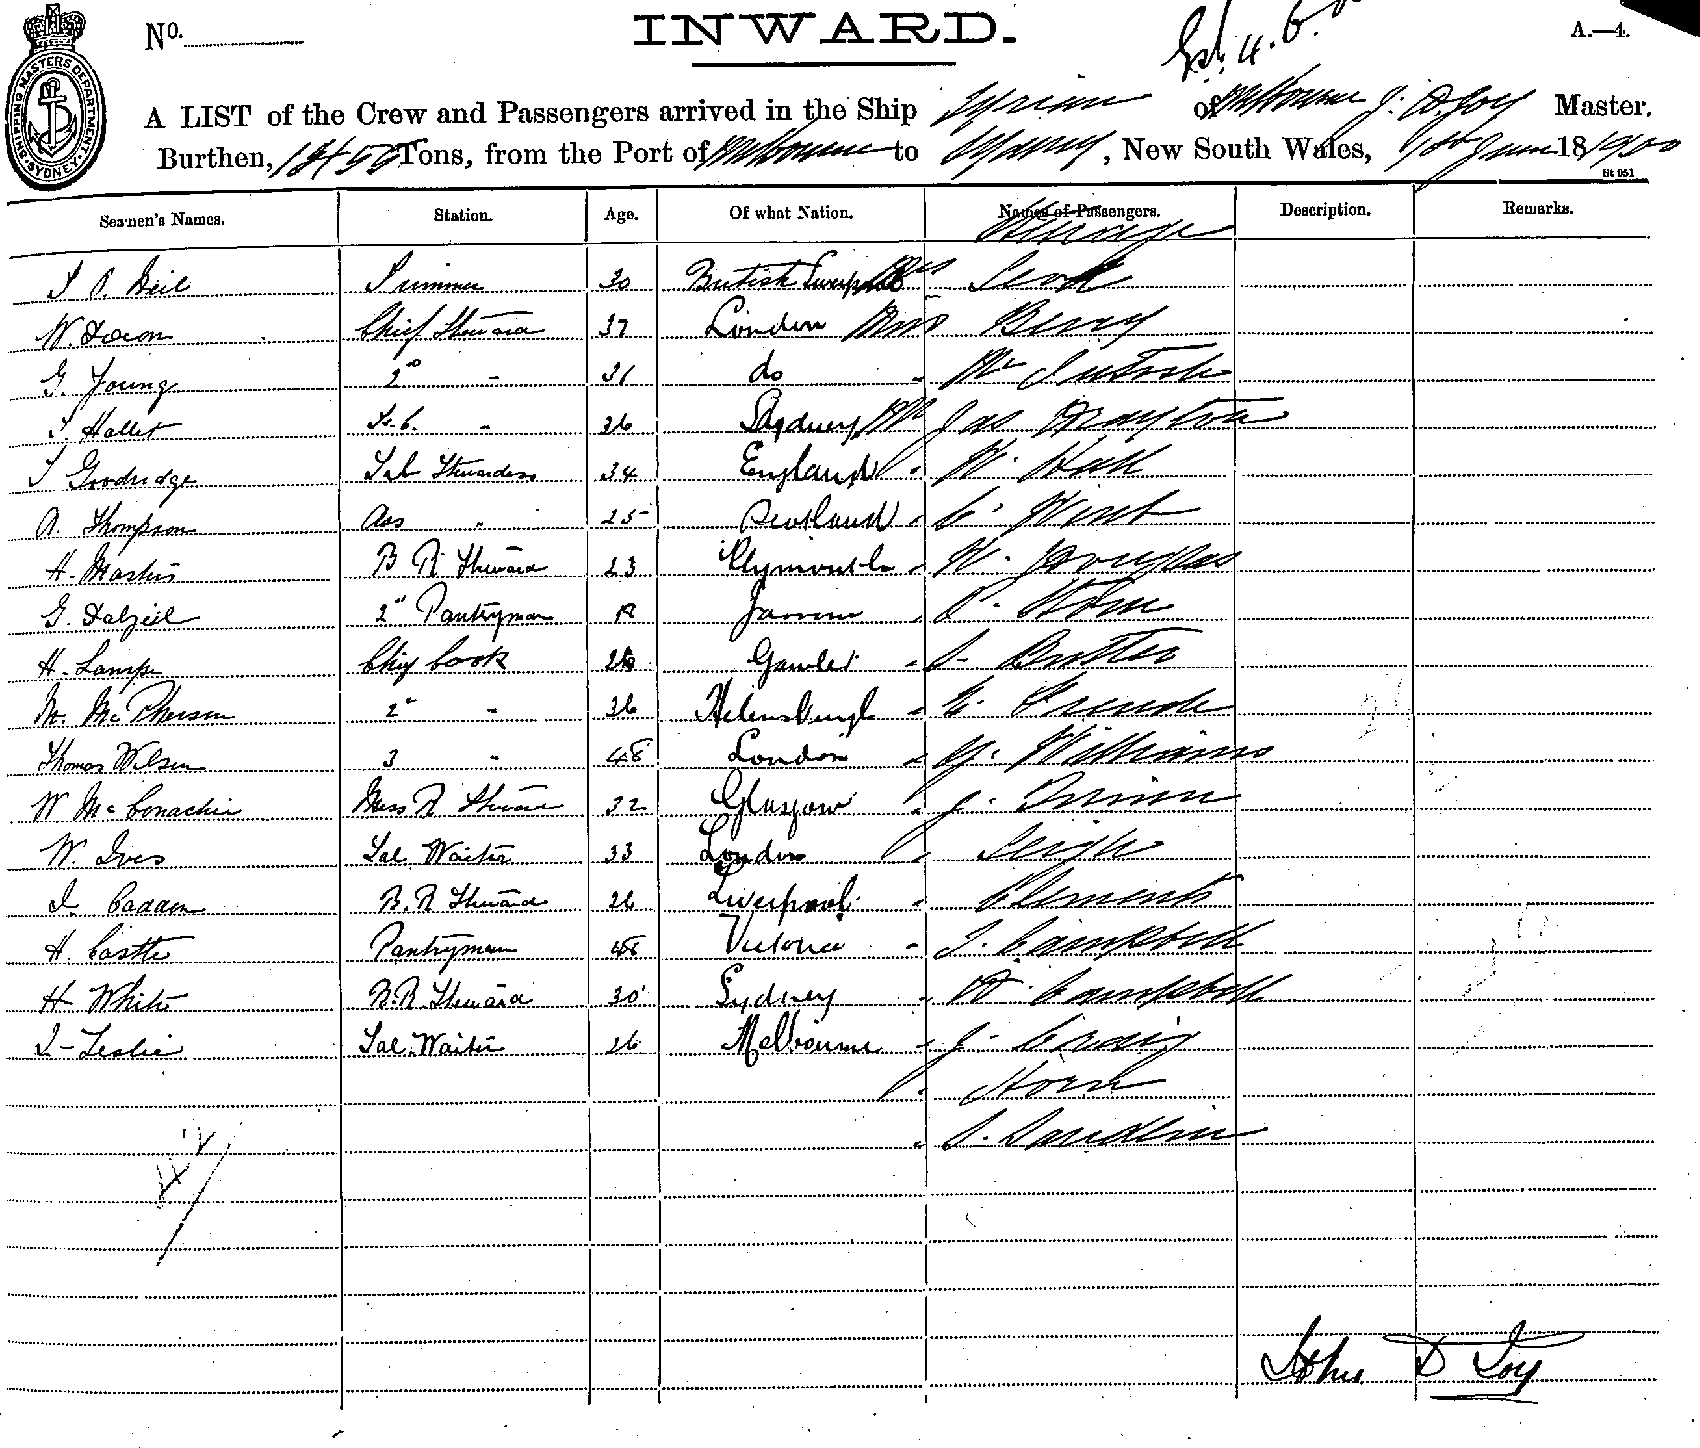 SHIPPING MASTERS DEPARTMENT SYDNEY
No.
INWARD.
A.—4.
A LIST of the Crew and Passengers arrived in the Ship Tyrian of Melbourne J. D. Toy Master.
Burthen, 1450 Tons, from the Port of Melbourne to Sydney, New South Wales, June 18 1900
Seamen's Names. Station. Age. Of what Nation. Names of Passengers. Description. Remarks.
Steerage
Neil Trimmer 30 British Liverpool Mrs Scott
W. Dixon Chief Steward 37 London Miss Berry
G. Young 2nd " 31 do " McIntosh
Hallet " 26 Sydney Mr Jas Drayton
Goodridge Sal Stewardess 34 England " W. Hall
A. Thompson Ass " 25 Scotland "
H. Martin B R Steward 23 Plymouth " W. Douglas
G. Dalzeil 2nd Pantryman Jarrow "
H. Lamp Chief Cook Gawler "
M. McPherson 2nd " 36 Helensburgh "
Thomas Wilson 3 " 48 London " Williams
W McConachie Mess R Steward 32 Glasgow " J.
W. Ives Sal Waiter 33 London " Leigh
Cadden B. R Steward 26 Liverpool " Clements
H. Castle Pantryman 48 Victoria " J. Campbell
H White B.R Steward 30 Sydney " D. Campbell
Leslie Sal. Waiter 26 Melbourne " J. Craig
" Horn
"
John D Toy